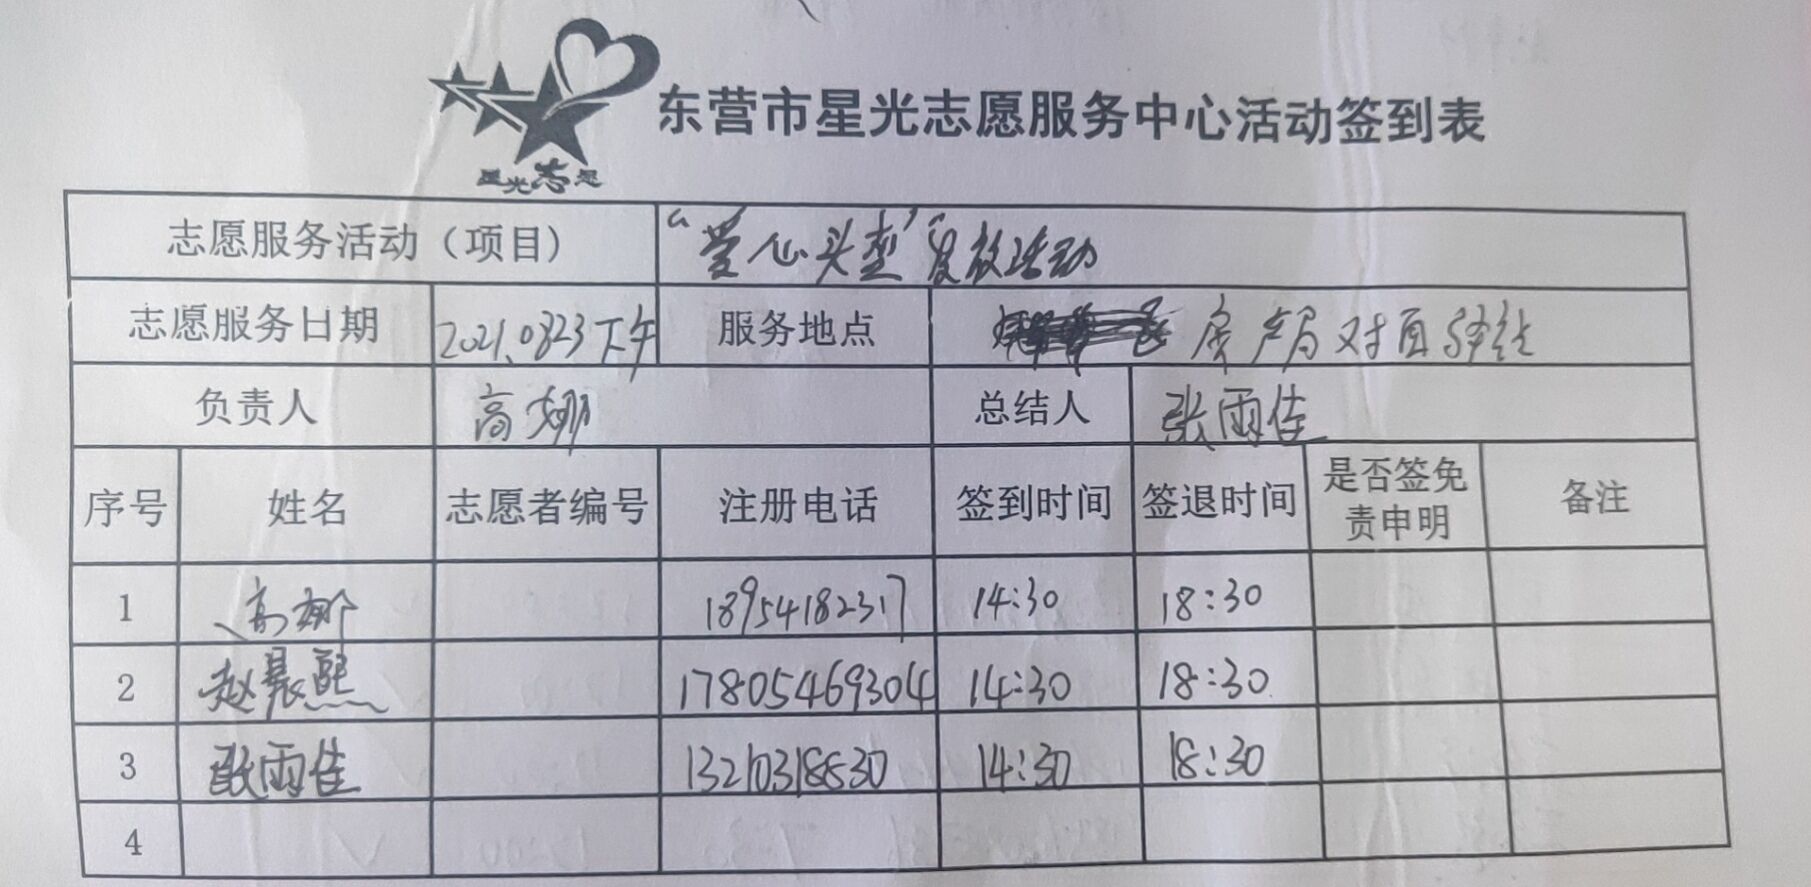 东营市星光志愿服务中心活动签到表
星光志愿
志愿服务活动（项目） “爱心头盔”发放活动
志愿服务日期 2021.0823下午 服务地点 房产局对面
负责人 高娜 总结人 张雨佳
序号 姓名 志愿者编号 注册电话 签到时间 签退时间 是否签免责申明 备注
1 高娜 18954182317 14:30 18:30
2 赵晨熙 17805469304 14:30 18:30
3 张雨佳 13210318830 14:30 18:30
4